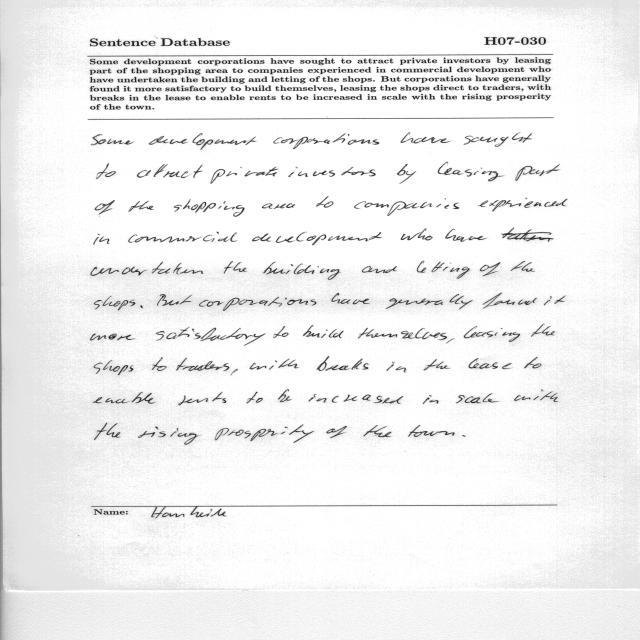 Sentence Database H07-030
Some development corporations have sought to attract private investors by leasing
part of the shopping area to companies experienced in commercial development who
have undertaken the building and letting of the shops. But corporations have generally
found it more satisfactory to build themselves, leasing the shops direct to traders, with
breaks in the lease to enable rents to be increased in scale with the rising prosperity
of the town.
Some development corporations have sought
to attract private investors by leasing part
of the shopping area to companies experienced
in commercial development who have taken
undertaken the building and letting of the
shops. But corporations have generally found it
more satisfactory to build themselves, leasing the
shops to traders, with breaks in the lease to
enable rents to be increased in scale with
the rising prosperity of the town.
Name: